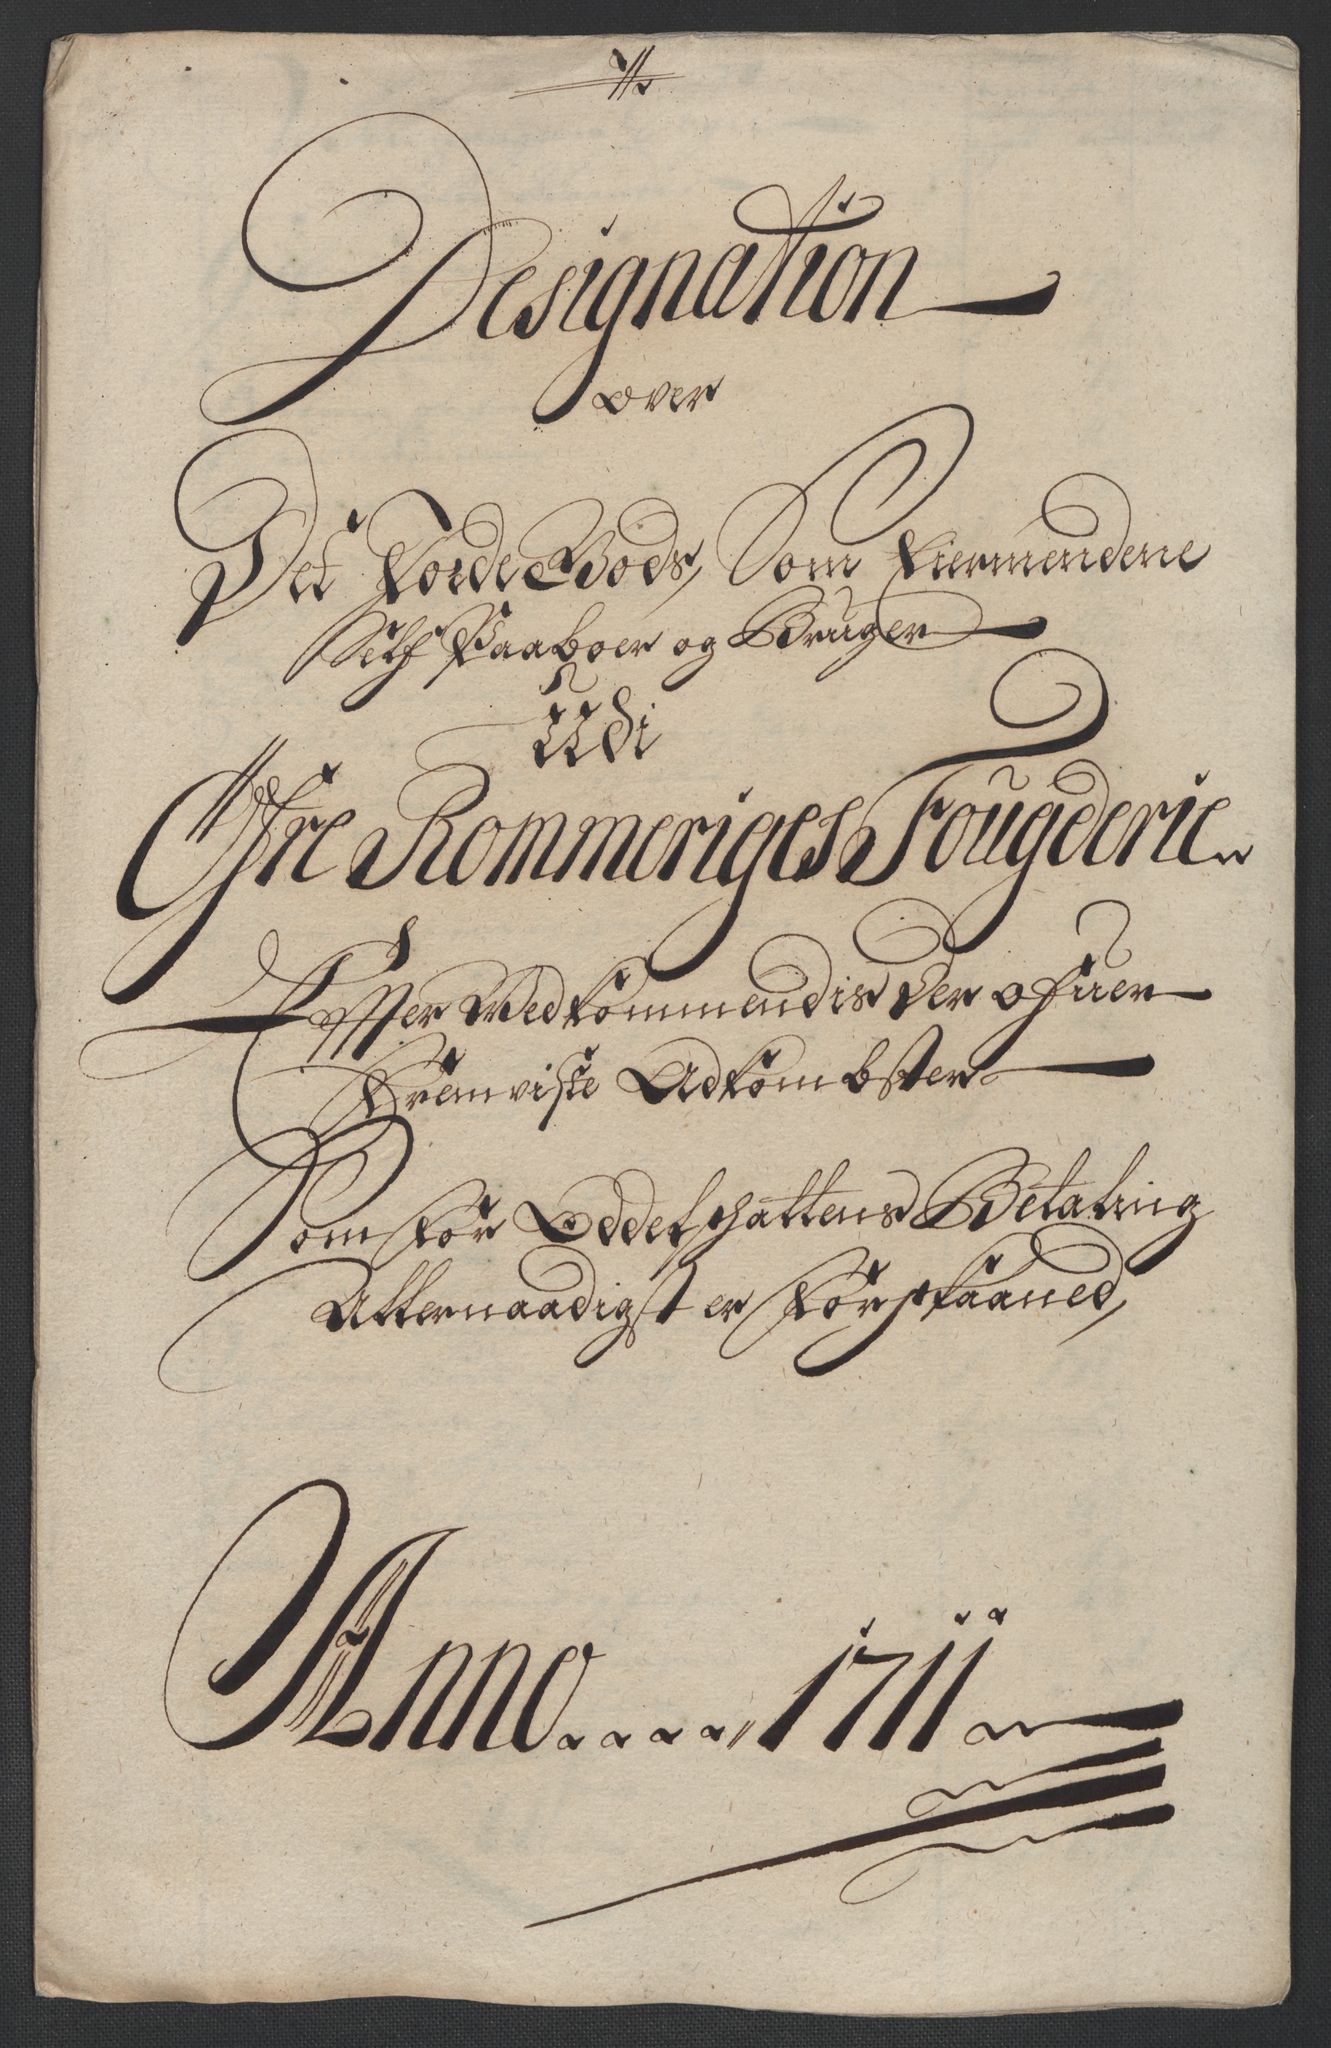 Designation
over
Det Jorde Gods, Som Eiermendene
Self Paaboer og Bruger
Udi
Øfre Rommeriges Fougderie
Effter Vedkommendis der ofuer
Fremviste Adkombster
Som for Oddelschattens Betaling
Allernaadigst er forskaaned,
Anno .... 1711